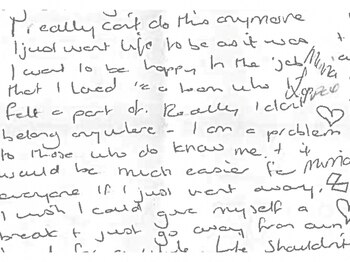 I really can't do this anymore
I just want life to be as it was +
I want to be happy In the job Mina
that I loved in a team who I
felt a part of. Really I don't
belong anywhere - I am a problem
to those who do know me + it
would be much easier for Mina
everyone if I just went away.
I wish I could give myself a
break + just go away from
Life Shouldn't